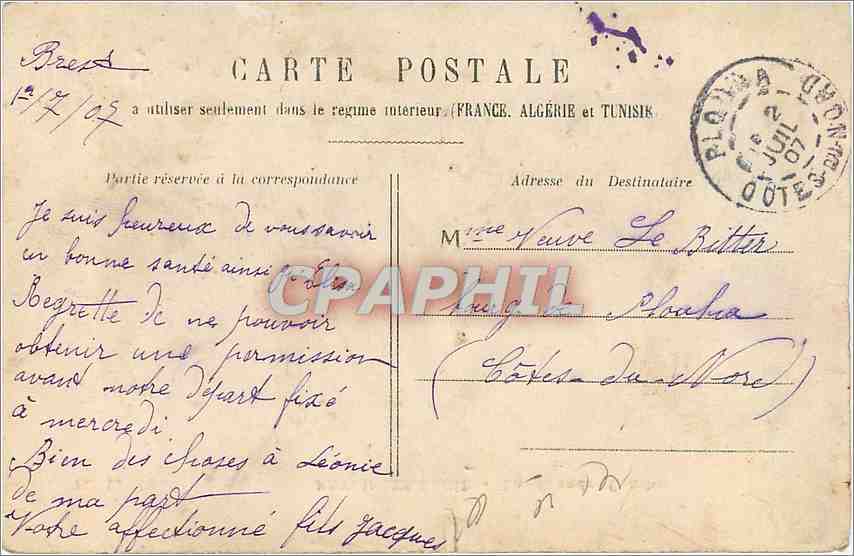 Brest
1er/7/07
CARTE POSTALE
a utiliser seulement dans le regime interieur (FRANCE, ALGÉRIE et TUNISIE
PLOUHA CÔTES-DU-NORD
2
JUIL
07
Partie réservée à la correspondance
Adresse du Destinataire
Je suis heureux de vous savoir
en bonne santé ainsi qu'Elisa
Regrette de ne pouvoir
obtenir une permission
avant notre départ fixé
à mercredi
Bien des choses à Léonie
de ma part
Votre affectionné fils Jacques
Mme Veuve Le Bitter
bourg de Plouha
(Côtes-du-Nord)
CPAPHIL